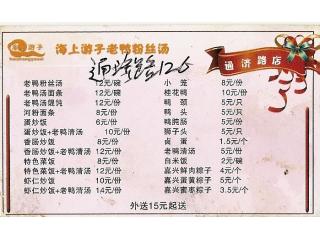 游子
海上游子老鸭粉丝汤
通济路店
通济路126
老鸭粉丝汤 12元/碗 小笼 8元/份
老鸭汤面条 12元/碗 桂花鸭 10元/份
老鸭汤馄饨 12元/份 鸭颈 5元/只
河粉面条 8元/份 鸭头 5元/只
蛋炒饭 6元/份 鸭肫肠 5元/份
蛋炒饭+老鸭清汤 12元/份 狮子头 5元/只
香肠炒饭 8元/份 卤蛋 1.5元/个
香肠炒饭+老鸭清汤 12元/份 老鸭清汤 5元/份
特色菜饭 8元/份 白米饭 2元/碗
特色菜饭+老鸭清汤 12元/份 嘉兴鲜肉粽子 4元/个
虾仁炒饭 10元/份 嘉兴蛋黄粽子 5元/个
虾仁炒饭+老鸭清汤 14元/份 嘉兴蜜枣粽子 3.5元/个
外送15元起送